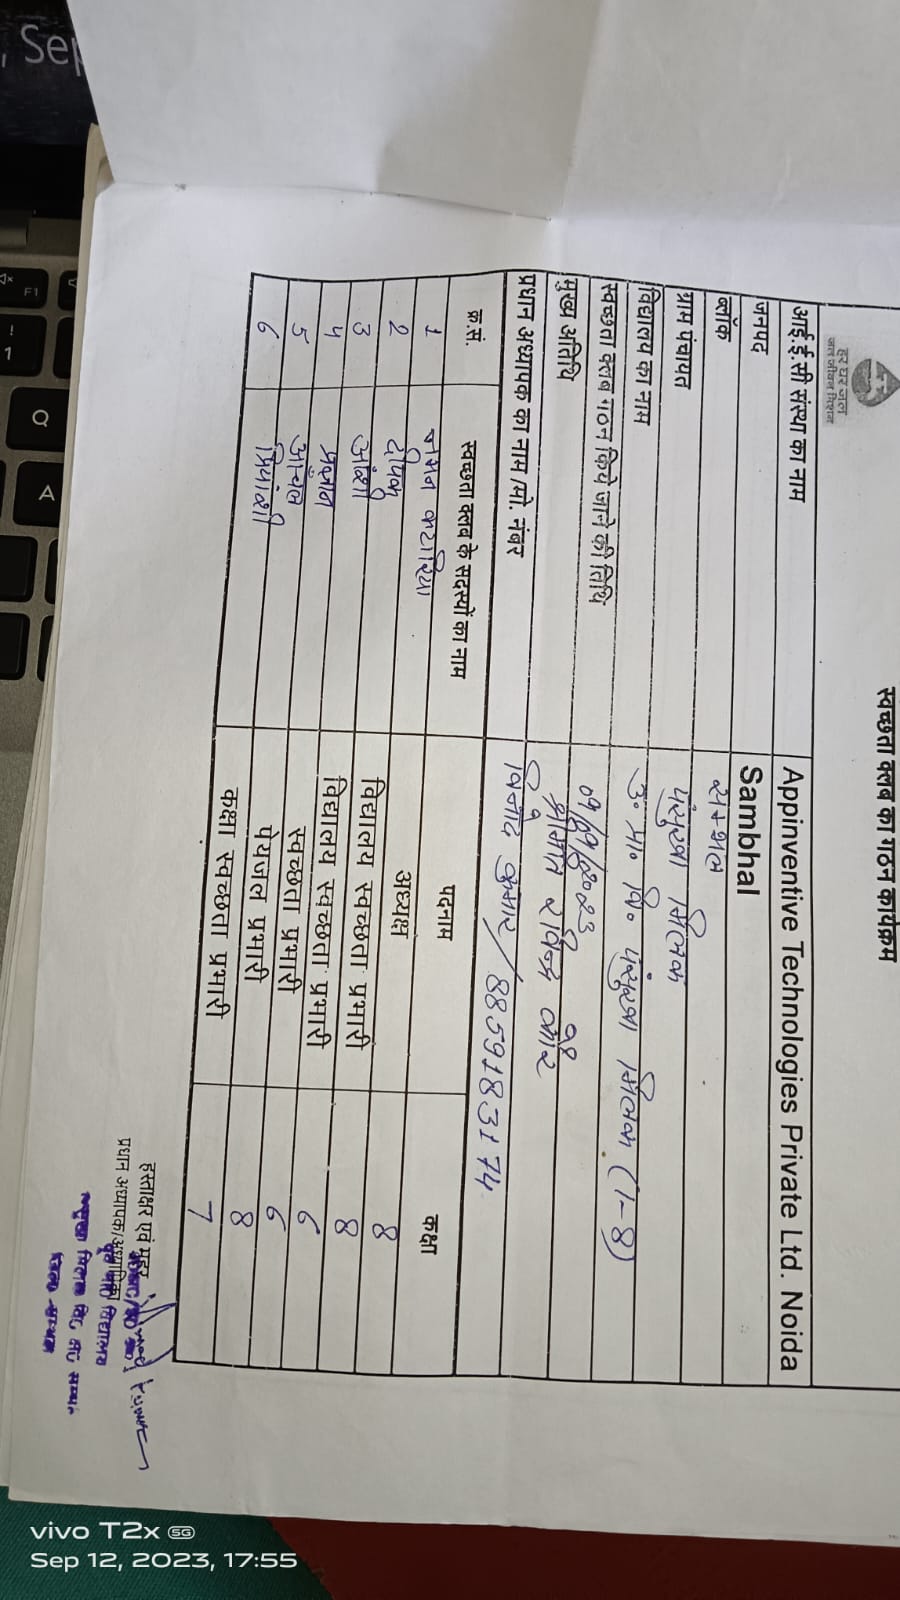 स्वच्छता क्लब का गठन कार्यक्रम
हर घर जल
जल जीवन मिशन
आई.ई.सी संस्था का नाम Appinventive Technologies Private Ltd. Noida
जनपद Sambhal
ब्लॉक सम्भल
ग्राम पंचायत मिलक
विद्यालय का नाम उ० प्रा० वि० मिलक (1-8)
स्वच्छता क्लब गठन किये जाने की तिथि
मुख्य अतिथि श्रीमति
प्रधान अध्यापक का नाम /मो. नंबर विनोद कुमार / 8859183174
क्र.सं. स्वच्छता क्लब के सदस्यों का नाम पदनाम कक्षा
1 कटारिया अध्यक्ष 8
2 दीपक विद्यालय स्वच्छता प्रभारी 8
3 अंशी विद्यालय स्वच्छता प्रभारी 6
4 स्वच्छता प्रभारी 6
5 आंचल पेयजल प्रभारी 8
6 प्रियांशी कक्षा स्वच्छता प्रभारी 7
हस्ताक्षर एवं मुहर
प्रधान अध्यापक/अध्यापिका
, Sep
F1
! 1
Q
A
vivo T2x 5G
Sep 12, 2023, 17:55